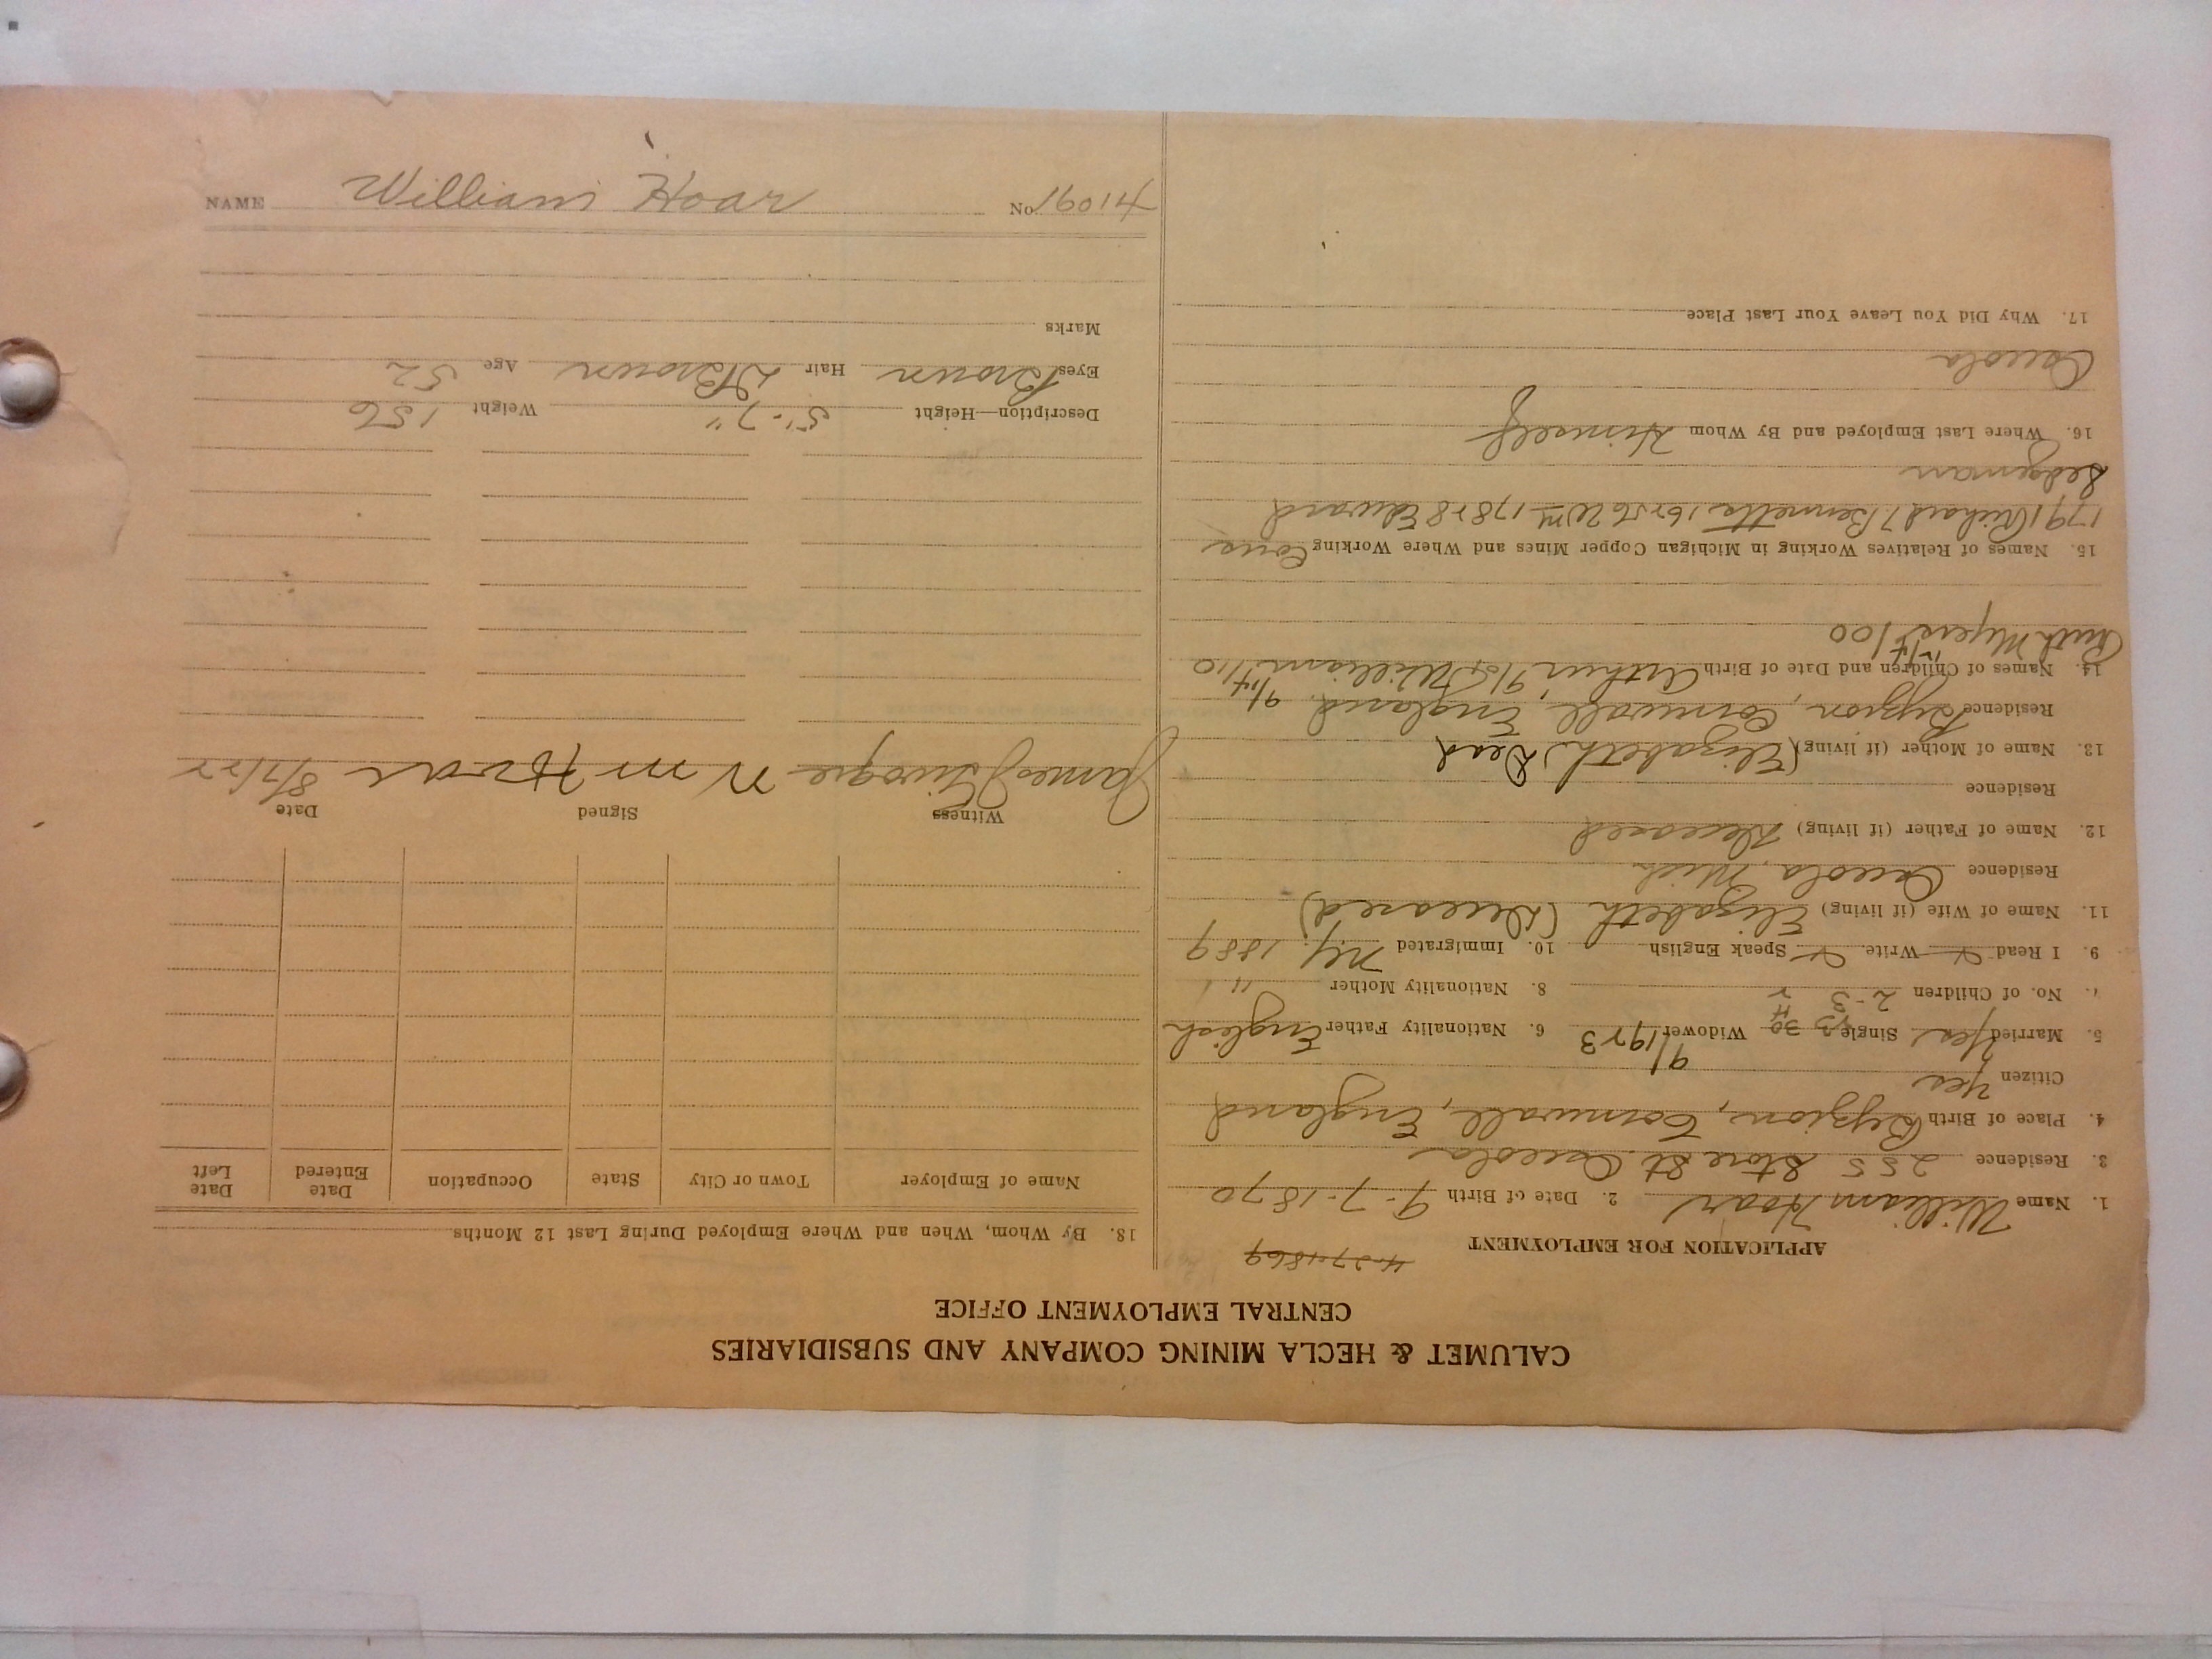 CALUMET & HECLA MINING COMPANY AND SUBSIDIARIES
CENTRAL EMPLOYMENT OFFICE
APPLICATION FOR EMPLOYMENT 4-27-1869
1. Name William Hoar 2. Date of Birth 9-7-1870
3. Residence 255 Store St. Osceola
4. Place of Birth Cornwall, England
Citizen Yes 9/1923
5. Married Yes Single Widower 6. Nationality Father English
7. No. of Children 2-3 8. Nationality Mother "
9. I Read Write Speak English 10. Immigrated N.Y. 1889
11. Name of Wife (if living) Elizabeth (Deceased)
Residence Osceola, Mich
12. Name of Father (if living) Deceased
Residence
13. Name of Mother (if living) (Elizabeth) Dead
Residence Cornwall, England.
14. Names of Children and Date of Birth Arthur William
Ruth Myers 100
15. Names of Relatives Working in Michigan Copper Mines and Where Working
1791 Richard 7 Bennetts Wm 17828 Edward
Sedgeman
16. Where Last Employed and By Whom Himself
Osceola
17. Why Did You Leave Your Last Place
18. By Whom, When and Where Employed During Last 12 Months
Name of Employer Town or City State Occupation Date Entered Date Left
Witness Signed Date
James Wm Hoar 8/1/22
Description—Height 5'-7" Weight 156
Eyes Brown Hair Brown Age 52
Marks
NAME William Hoar No. 16014